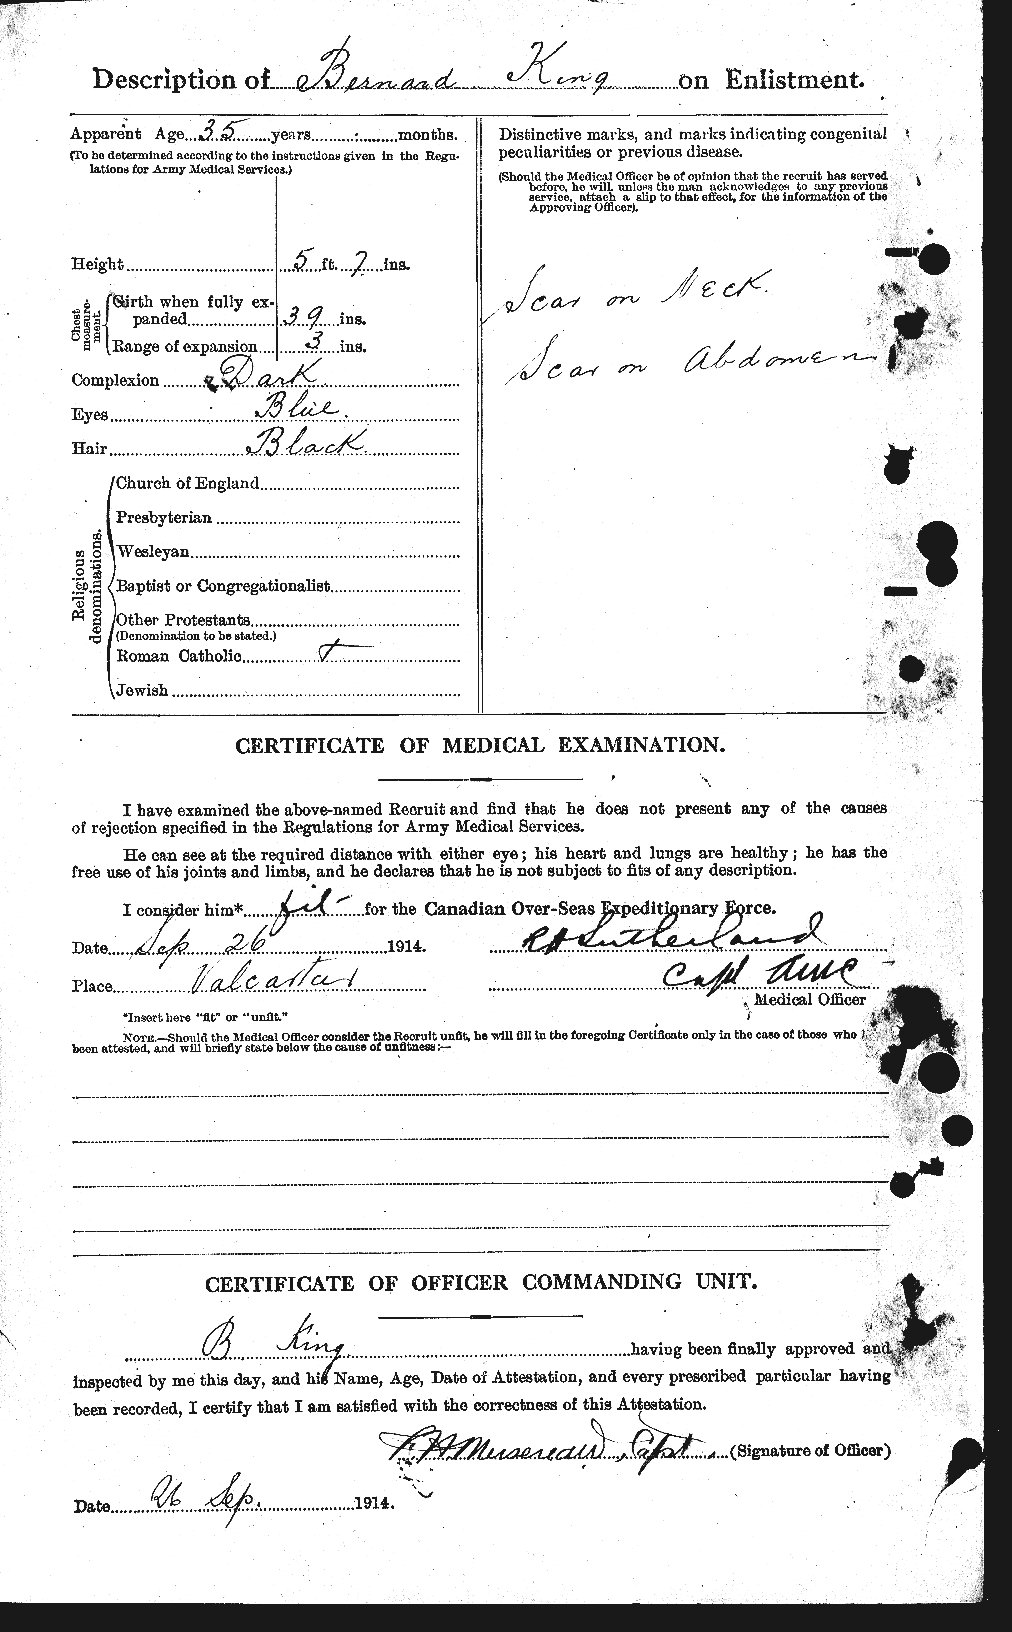 Description of Bernard King on Enlistment.
Apparent Age 35 years months.
(To be determined according to the instructions given in the Regu-
lations for Army Medical Services.)
Height 5 ft. 7 ins.
Chest measurement.
Girth when fully ex-
panded 39 ins.
Range of expansion 3 ins.
Complexion Dark
Eyes Blue.
Hair Black
Religious denominations.
Church of England
Presbyterian
Wesleyan
Baptist or Congregationalist
Other Protestants
(Denomination to be stated.)
Roman Catholic +
Jewish
Distinctive marks, and marks indicating congenital
peculiarities or previous disease.
(Should the Medical Officer be of opinion that the recruit has served
before, he will, unless the man acknowledges to any previous
service, attach a slip to that effect, for the information of the
Approving Officer).
Scar on Neck.
Scar on Abdomen
CERTIFICATE OF MEDICAL EXAMINATION.
I have examined the above-named Recruit and find that he does not present any of the causes
of rejection specified in the Regulations for Army Medical Services.
He can see at the required distance with either eye; his heart and lungs are healthy; he has the
free use of his joints and limbs, and he declares that he is not subject to fits of any description.
I consider him* fit for the Canadian Over-Seas Expeditionary Force.
Date Sep 26 1914. R H Sutherland
Place Valcartier Capt AMC
Medical Officer
*Insert here "fit" or "unfit."
NOTE.—Should the Medical Officer consider the Recruit unfit, he will fill in the foregoing Certificate only in the case of those who
been attested, and will briefly state below the cause of unfitness:—
CERTIFICATE OF OFFICER COMMANDING UNIT.
B King having been finally approved and
inspected by me this day, and his Name, Age, Date of Attestation, and every prescribed particular having
been recorded, I certify that I am satisfied with the correctness of this Attestation.
Capt. (Signature of Officer)
Date 26 Sep. 1914.